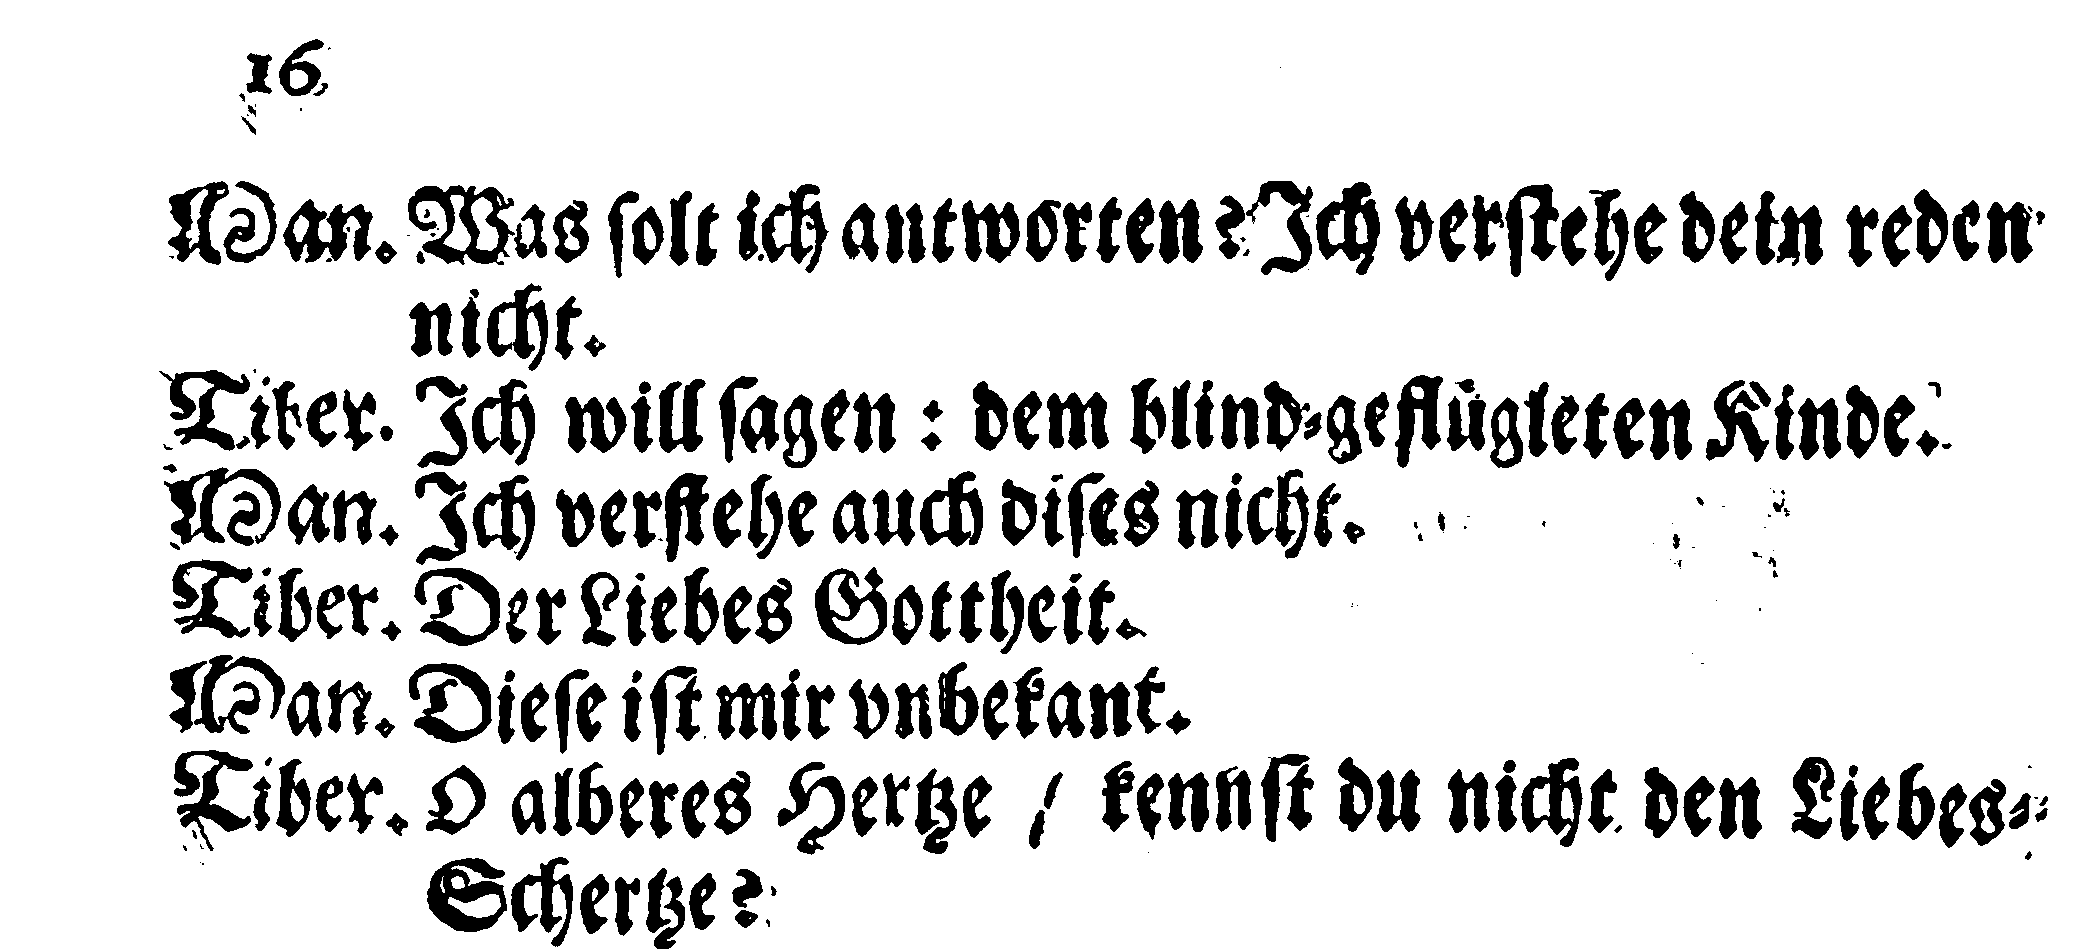 16
Man. Was ſolt ich antworten? Ich verſtehe dein reden
nicht.
Tiber. Ich will ſagen : dem blind-geflügleten Kinde.
Man. Ich verſtehe auch diſes nicht.
Tiber. Der Liebes Gottheit.
Man. Dieſe iſt mir vnbekant.
Tiber. O alberes Hertze / kennſt du nicht den Liebes-
Schertze?